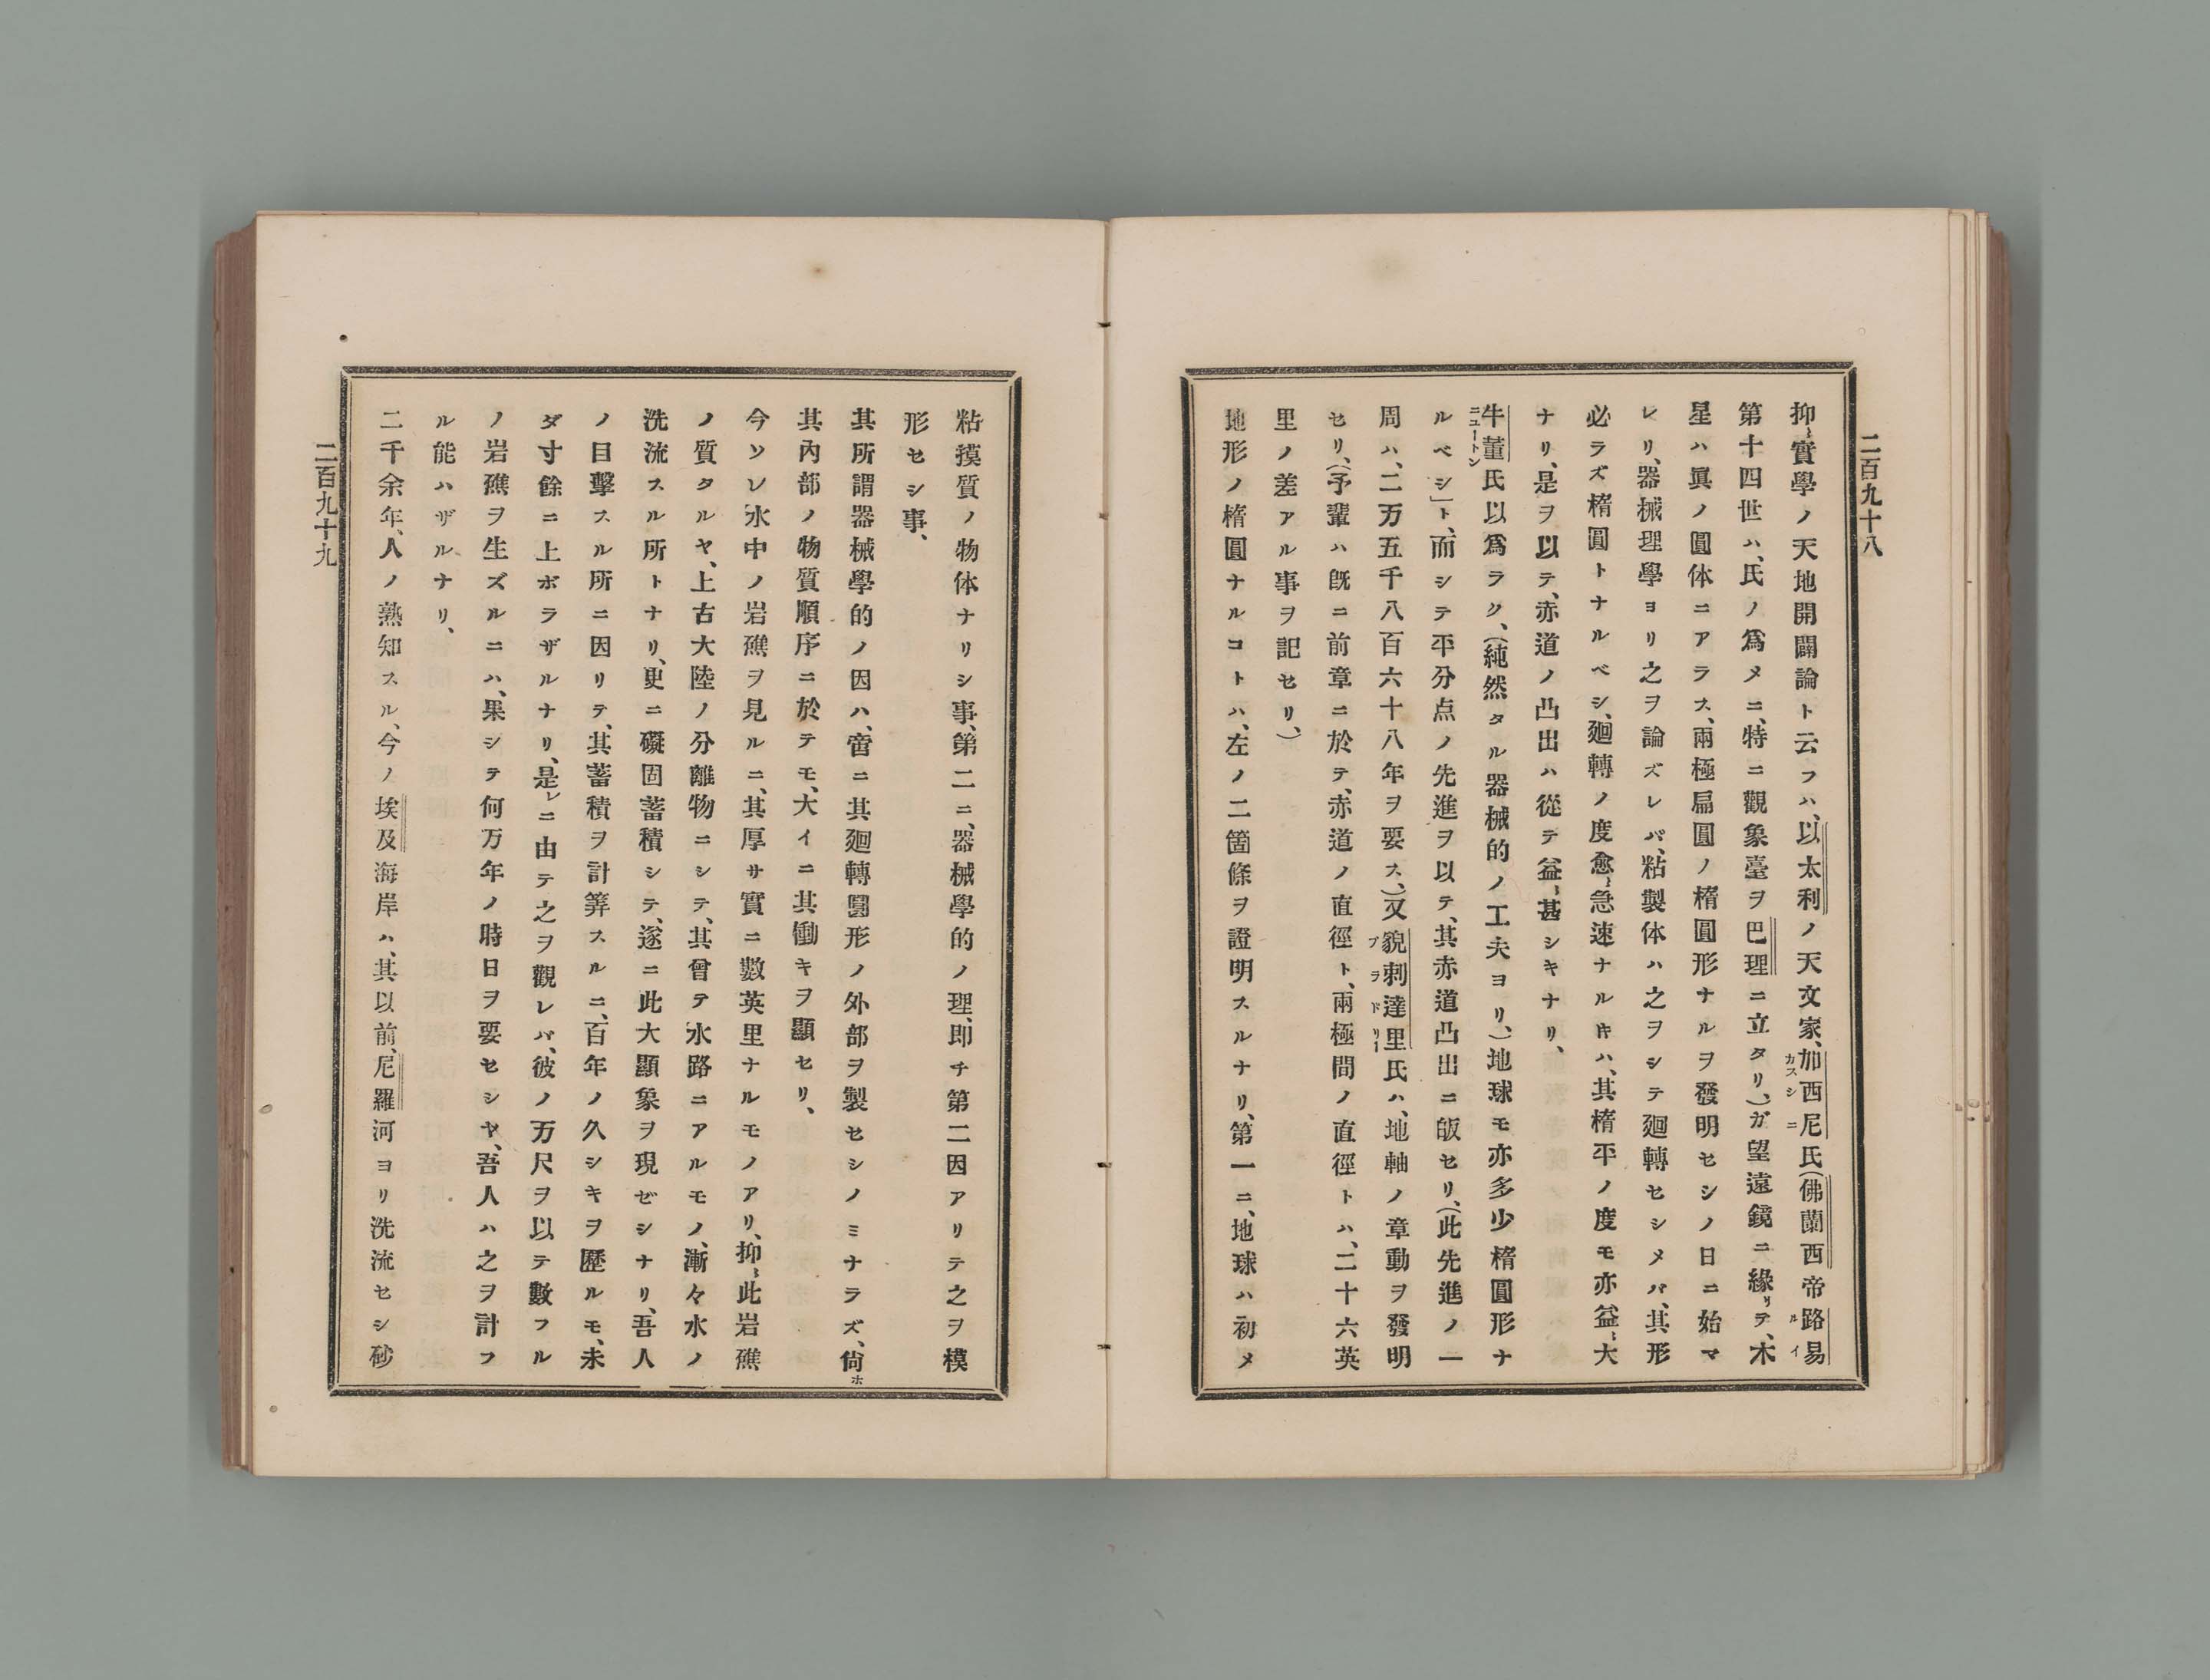 二百九十八
抑〻實學ノ天地開闢論ト云フハ、以太利ノ天文家、加西尼氏(佛蘭西帝路易
第十四世ハ、氏ノ爲メニ、特ニ觀象臺ヲ巴理ニ立タリ、)ガ望遠鏡ニ緣リテ、木
星ハ眞ノ圓体ニアラス、兩極扁圓ノ楕圓形ナルヲ發明セシノ日ニ始マ
レリ、器械理學ヨリ之ヲ論ズレバ、粘製体ハ之ヲシテ廻轉セシメバ、其形
必ラズ楕圓トナルベシ、廻轉ノ度愈〻急速ナルキハ、其楕平ノ度モ亦益〻大
ナリ、是ヲ以テ、赤道ノ凸出ハ從テ益〻甚シキナリ、
牛董氏以爲ラク、(純然タル器械的ノ工夫ヨリ、)地球モ亦多少楕圓形ナ
ルベシ」ト、而シテ平分点ノ先進ヲ以テ、其赤道凸出ニ皈セリ、(此先進ノ一
周ハ、二万五千八百六十八年ヲ要ス、)又貌刺達里氏ハ、地軸ノ章動ヲ發明
セリ、(予輩ハ既ニ前章ニ於テ、赤道ノ直徑ト、兩極間ノ直徑トハ、二十六英
里ノ差アル事ヲ記セリ、)
地形ノ楕圓ナルコトハ、左ノ二箇條ヲ證明スルナリ、第一ニ、地球ハ初メ
粘摸質ノ物体ナリシ事、第二ニ、器械學的ノ理、即チ第二因アリテ之ヲ模
形セシ事、
其所謂器械學的ノ因ハ、啻ニ其廻轉圜形ノ外部ヲ製セシノミナラズ、尙ホ
其內部ノ物質順序ニ於テモ、大イニ其働キヲ顯セリ、
今ソレ水中ノ岩礁ヲ見ルニ、其厚サ實ニ數英里ナルモノアリ、抑〻此岩礁
ノ質タルヤ、上古大陸ノ分離物ニシテ、其曾テ水路ニアルモノ、漸々水ノ
洗流スル所トナリ、更ニ礙固蓄積シテ、遂ニ此大顯象ヲ現ゼシナリ、吾人
ノ目擊スル所ニ因リテ、其蓄積ヲ計筭スルニ、百年ノ久シキヲ歷ルモ、未
ダ寸餘ニ上ボラザルナリ、是レニ由テ之ヲ觀レバ、彼ノ万尺ヲ以テ數フル
ノ岩礁ヲ生ズルニハ、果シテ何万年ノ時日ヲ要セシヤ、吾人ハ之ヲ計フ
ル能ハザルナリ、
二千余年、人ノ熟知スル、今ノ埃及海岸ハ、其以前、尼羅河ヨリ洗流セシ砂
二百九十九